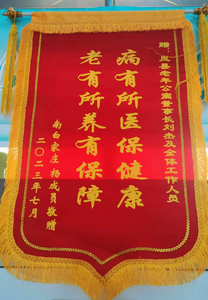 赠：岚县老年公寓董事长刘杰及全体工作人员
病有所医保健康
老有所养有保障
南白家庄 杨成员敬赠
二〇二三年七月